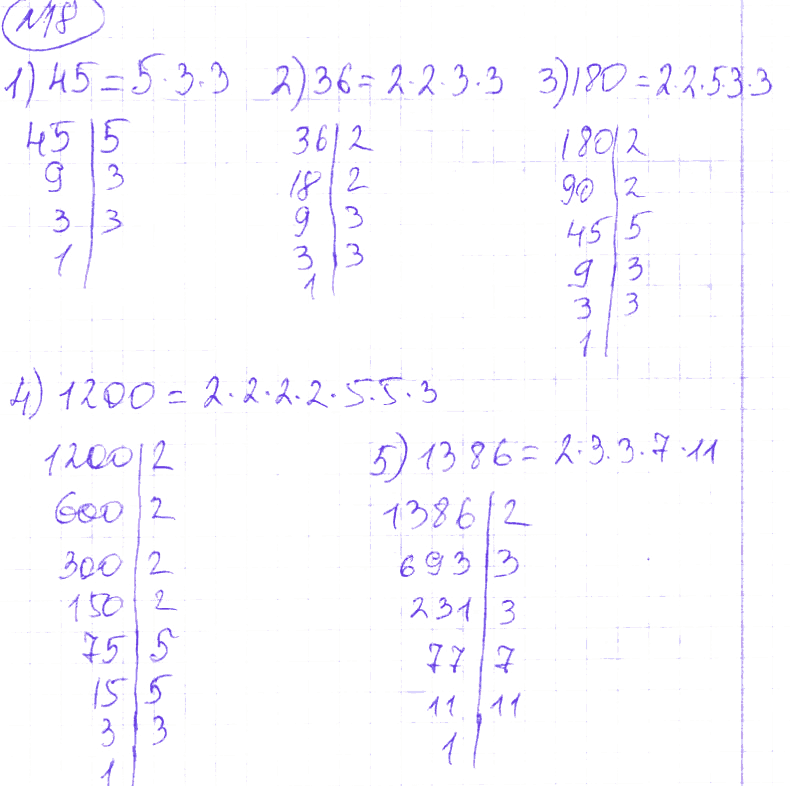 №18
1) 45 = 5·3·3 2) 36 = 2·2·3·3 3) 180 = 2·2·5·3·3
45 | 5
9 | 3
3 | 3
1 |
36 | 2
18 | 2
9 | 3
3 | 3
1 |
180 | 2
90 | 2
45 | 5
9 | 3
3 | 3
1 |
4) 1200 = 2·2·2·2·5·5·3
1200 | 2
600 | 2
300 | 2
150 | 2
75 | 5
15 | 5
3 | 3
1 |
5) 1386 = 2·3·3·7·11
1386 | 2
693 | 3
231 | 3
77 | 7
11 | 11
1 |